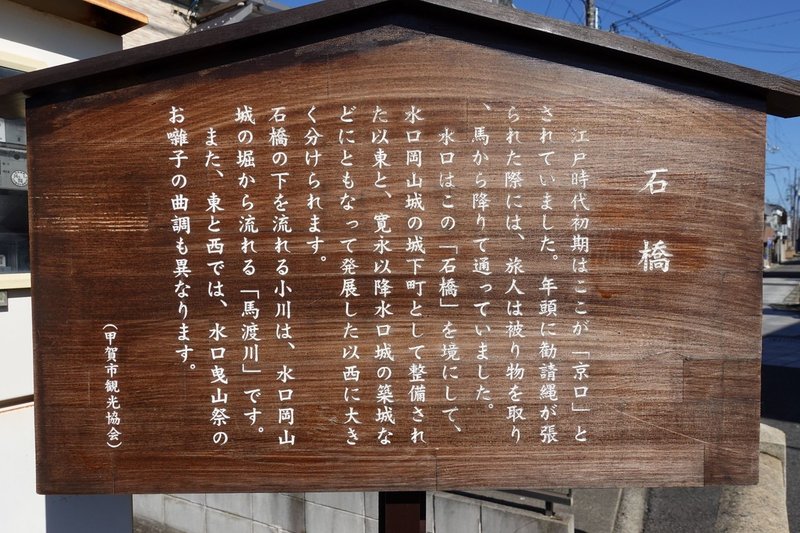 石橋
江戸時代初期はここが「京口」と
されていました。年頭に勧請縄が張
られた際には、旅人は被り物を取り
、馬から降りて通っていました。
水口はこの「石橋」を境にして、
水口岡山城の城下町として整備され
た以東と、寛永以降水口城の築城な
どにともなって発展した以西に大き
く分けられます。
石橋の下を流れる小川は、水口岡山
城の堀から流れる「馬渡川」です。
また、東と西では、水口曳山祭の
お囃子の曲調も異なります。
（甲賀市観光協会）